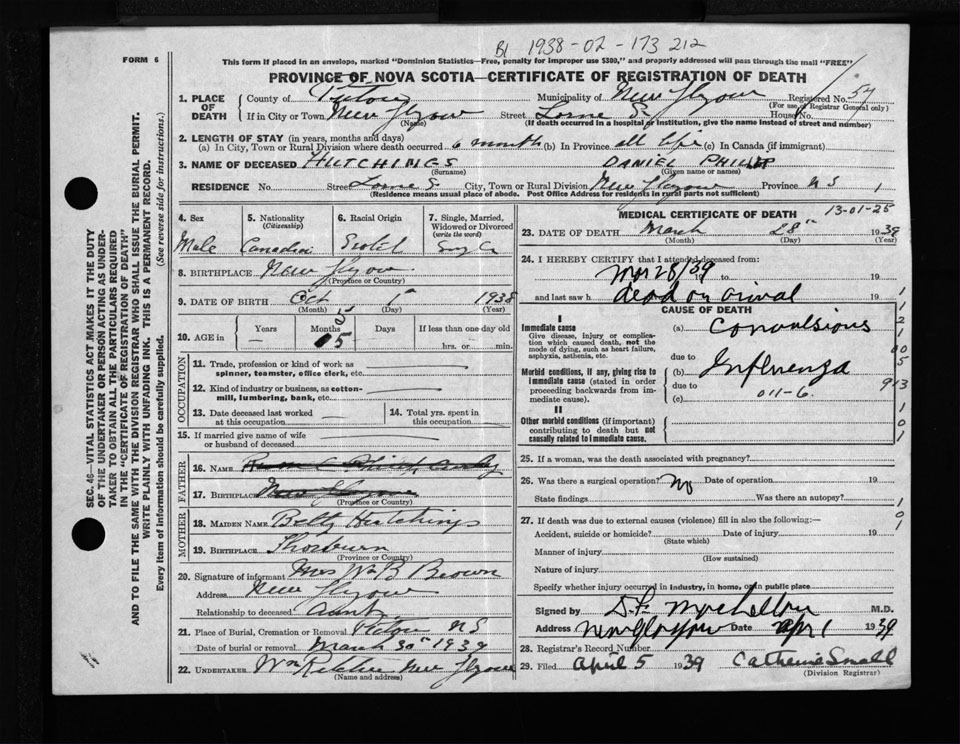 B1 1938-02-173 212
FORM 6
This form if placed in an envelope, marked "Dominion Statistics—Free, penalty for improper use $300," and properly addressed will pass through the mail "FREE"
PROVINCE OF NOVA SCOTIA—CERTIFICATE OF REGISTRATION OF DEATH
SEC. 46—VITAL STATISTICS ACT MAKES IT THE DUTY
OF THE UNDERTAKER OR PERSON ACTING AS UNDER-
TAKER TO OBTAIN ALL THE PARTICULARS REQUIRED
IN THE "CERTIFICATE OF REGISTRATION OF DEATH"
AND TO FILE THE SAME WITH THE DIVISION REGISTRAR WHO SHALL ISSUE THE BURIAL PERMIT.
WRITE PLAINLY WITH UNFADING INK. THIS IS A PERMANENT RECORD.
Every item of information should be carefully supplied. (See reverse side for instructions.)
1. PLACE OF DEATH County of Pictou Municipality of New Glasgow Registered No. 37
(For use of Registrar General only)
If in City or Town New Glasgow Street Lorne S. House No.
(Name) (If death occurred in a hospital or institution, give the name instead of street and number)
2. LENGTH OF STAY (in years, months and days)
(a) In City, Town or Rural Division where death occurred 6 months (b) In Province all life (c) In Canada (if immigrant)
3. NAME OF DECEASED HUTCHINGS DANIEL PHILLIP
(Surname) (Given name or names)
RESIDENCE No. Street Lorne S. City, Town or Rural Division New Glasgow Province N S 1
(Residence means usual place of abode. Post Office Address for residents in rural parts not sufficient)
4. Sex 5. Nationality (Citizenship) 6. Racial Origin 7. Single, Married, Widowed or Divorced (write the word)
Male Canadian Scotch Single
8. BIRTHPLACE New Glasgow
(Province or Country)
9. DATE OF BIRTH Oct 1 1938
(Month) (Day) (Year)
10. AGE in Years Months Days If less than one day old
— 5 5 hrs. or min.
OCCUPATION
11. Trade, profession or kind of work as spinner, teamster, office clerk, etc.
12. Kind of industry or business, as cotton-mill, lumbering, bank, etc.
13. Date deceased last worked at this occupation 14. Total yrs. spent in this occupation
15. If married give name of wife or husband of deceased
FATHER
16. NAME
17. BIRTHPLACE New Glasgow
(Province or Country)
MOTHER
18. MAIDEN NAME Betty Hutchings
19. BIRTHPLACE Thorburn
(Province or Country)
20. Signature of informant Mrs Wm B Brown
Address New Glasgow
Relationship to deceased Aunt
21. Place of Burial, Cremation or Removal Pictou N S
Date of burial or removal March 30th 1939
22. UNDERTAKER Wm New Glasgow
(Name and address)
MEDICAL CERTIFICATE OF DEATH 13-01-25
23. DATE OF DEATH March 28th 1939
(Month) (Day) (Year)
24. I HEREBY CERTIFY that I attended deceased from:
Mar 28/39 19 to 19
and last saw h dead on arrival 19
CAUSE OF DEATH
I
Immediate cause (a) Convulsions
Give disease, injury or complication which caused death, not the mode of dying, such as heart failure, asphyxia, asthenia, etc.
due to
Morbid conditions, if any, giving rise to immediate cause (stated in order proceeding backwards from immediate cause). (b) Influenza
due to
(c) 011-6.
II
Other morbid conditions (if important) contributing to death but not causally related to immediate cause.
25. If a woman, was the death associated with pregnancy?
26. Was there a surgical operation? No Date of operation 19
State findings Was there an autopsy?
27. If death was due to external causes (violence) fill in also the following:—
Accident, suicide or homicide? Date of injury 19
(State which)
Manner of injury
(How sustained)
Nature of injury
Specify whether injury occurred in industry, in home, or in public place
Signed by M.D.
Address New Glasgow Date Apr 1 1939
28. Registrar's Record Number
29. Filed April 5 1939 Catherine Small
(Division Registrar)